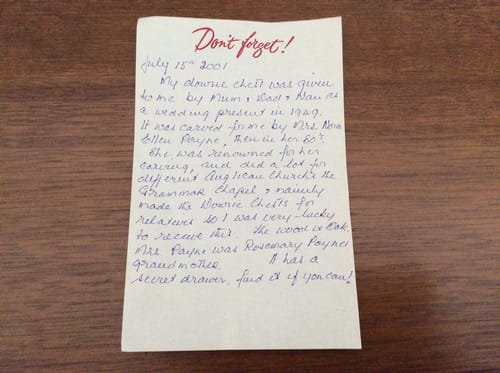 Don't forget!
July 15th 2001
My dowrie chest was given
to me by Mum & Dad & Dan as
a wedding present in 1949.
It was carved for me by Mrs. Nora
Ellen Payne, then in her 80's.
She was renowned for her
carving, and did a lot for
different Anglican Churchs the
Grammar Chapel & mainly
made the Dowrie Chests for
relatives so I was very lucky
to receive this. The wood is Oak.
Mrs. Payne was Rosemary Paynes
Grandmother. It has a
secret drawer, find it if you can!